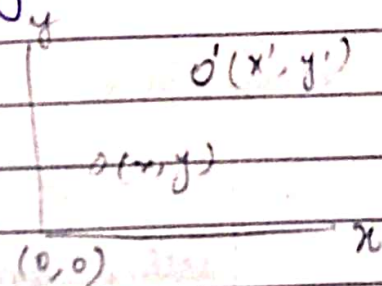 y
O'(x', y')
(x, y)
(0,0)
x